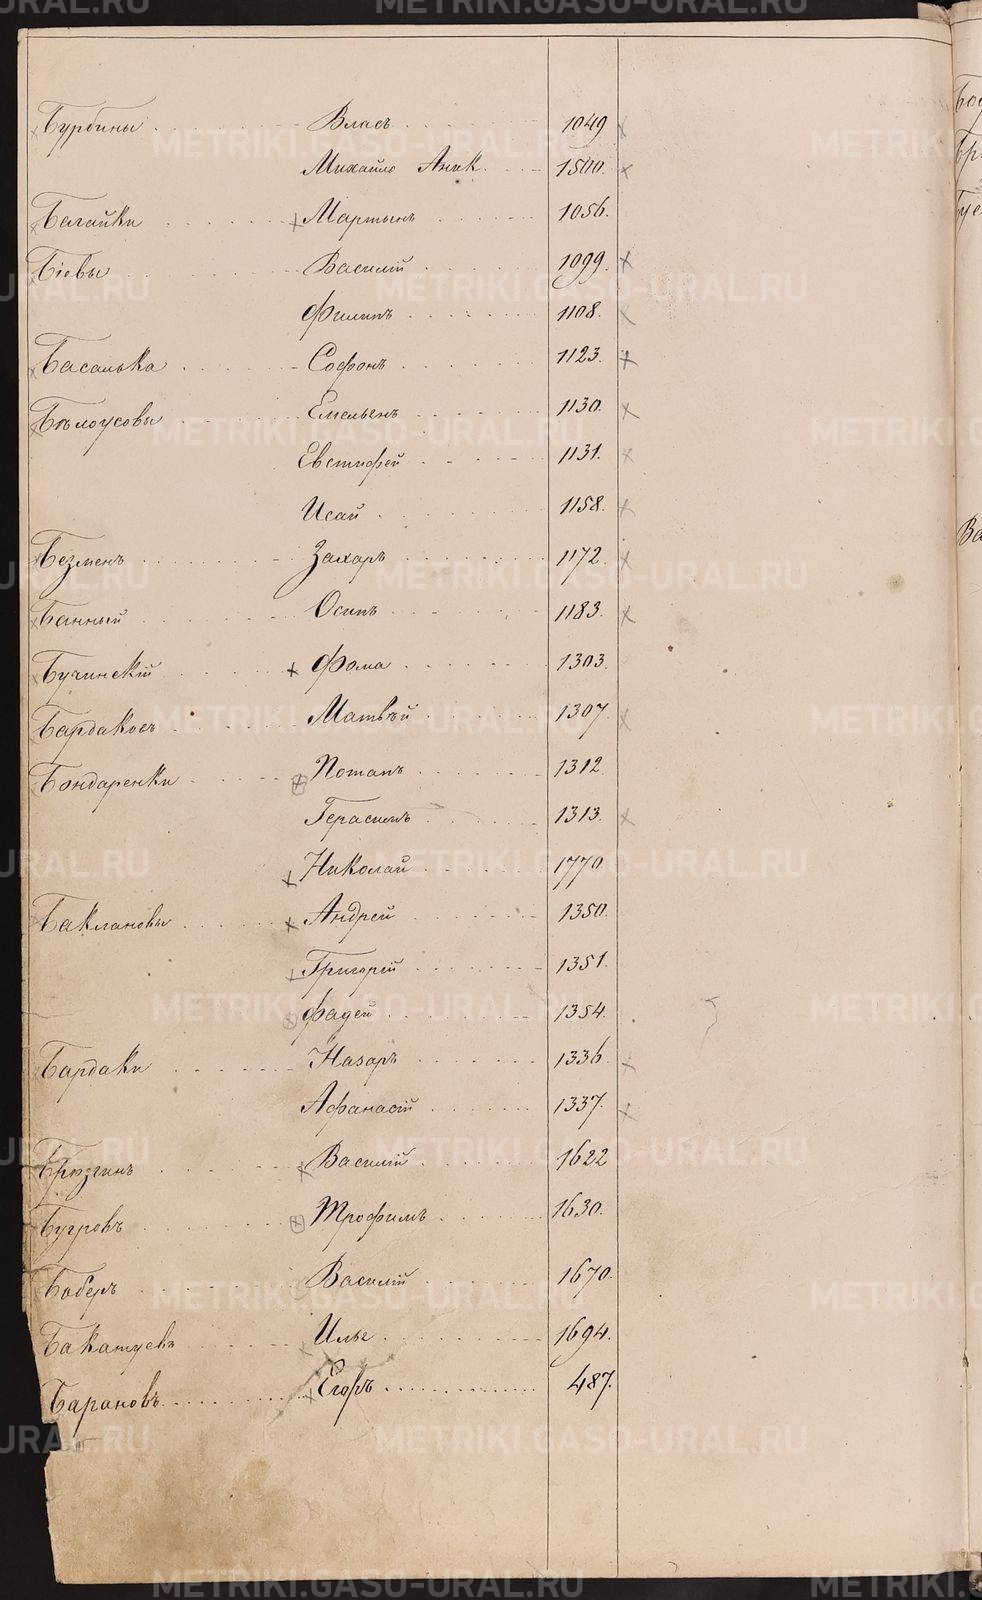 Бурбины Власъ 1049
Михайло Аник. 1500.
Багайки Мартынъ 1056.
Біевы Василій 1099.
Филипъ 1108.
Басалыка Софонъ 1123.
Бѣлоусовы Емельянъ 1130.
Евстифей 1131.
Исай 1158.
Безменъ Захаръ 1172.
Банный Осипъ 1183.
Бучинскій Фома 1303.
Бардакосъ Матвѣй 1307.
Бондаренки Потапъ 1312.
Герасимъ 1313.
Николай 1770.
Баклановы Андрей 1350.
Григорій 1351.
Фадей 1354.
Бардаки Назаръ 1336.
Афанасій 1337.
Брюзгинъ Василій 1622
Бугровъ Трофимъ 1630.
Боберъ Василій 1670.
Бакатуевъ Илья 1694.
Барановъ Егоръ 487.
METRIKI.GASO-URAL.RU